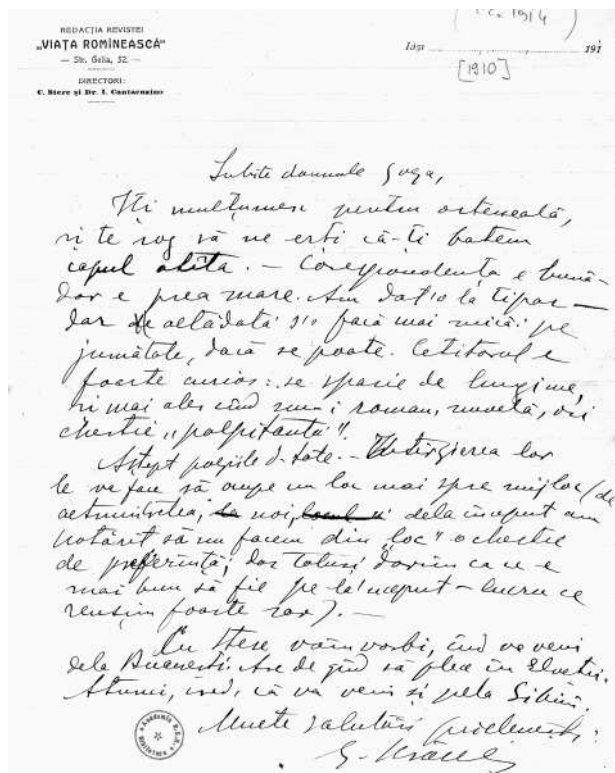 REDACȚIA REVISTEI
„VIAȚA ROMÎNEASCĂ"
— Str. Golia, 52. —
DIRECTORI:
C. Stere și Dr. I. Cantacuzino
1914
Iași 191
[1910]
Iubite domnule Goga,
Iți mulțumesc pentru osteneală,
și te rog să ne erți că-ți batem
capul atîta. — Corespondența e bună-
dar e prea mare. Am dat'o la tipar —
dar de altădată s'o facă mai mică: pe
jumătate, dacă se poate. Cetitorul e
foarte curios: se sparie de lungime,
și mai ales cînd nu-i roman, nuvelă, ori
chestie „palpitantă".
Aștept poeziile d-tale. — Întîrzierea lor
le va face să ocupe un loc mai spre mijloc (de
altmintrelea, noi, dela început am
hotărît să nu facem din „loc" o chestie
de preferință; dar totuși dorim ca ce e
mai bun să fie pe la'nceput — lucru ce
reușim foarte rar). —
Cu Stere vom vorbi, cînd va veni
dela București. Are de gînd să plece în Elveția.
Atunci, cred, că va veni și pela Sibiiu.
Multe salutări
G. Ibrăileanu